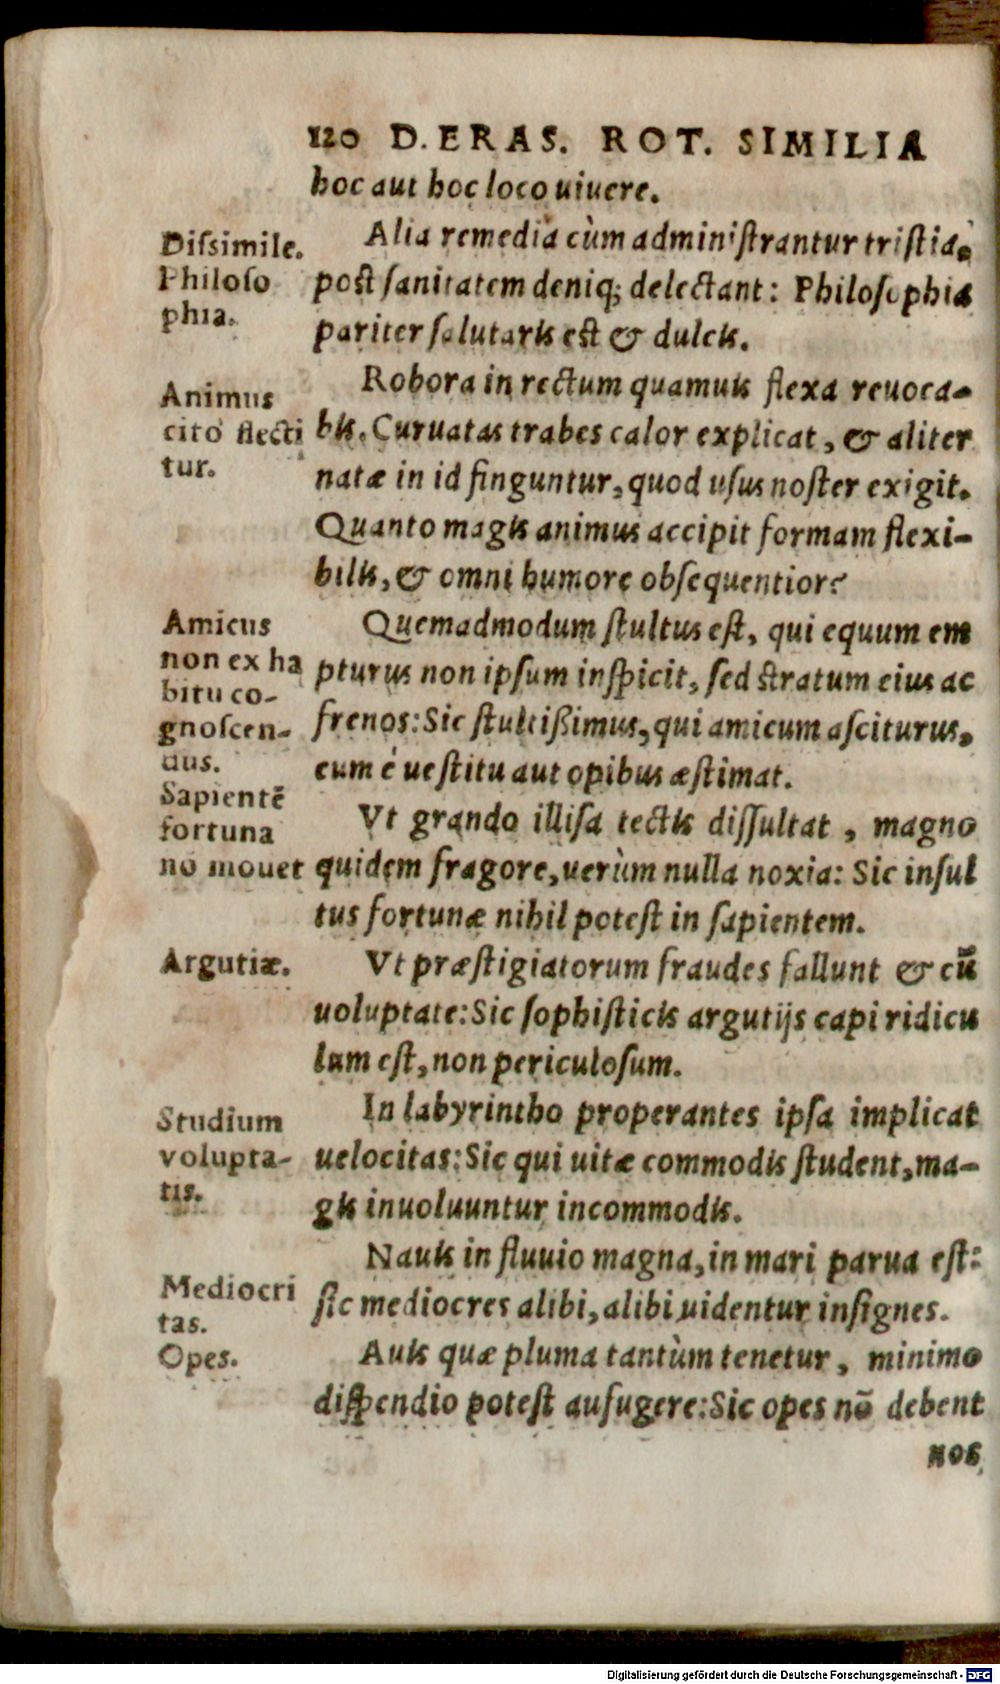 120 D. ERAS. ROT. SIMILIA
hoc aut hoc loco uiuere.
Dissimile.
Philoso
phia.
Alia remedia cùm administrantur tristia,
post sanitatem deniq; delectant: Philosophia
pariter salutaris est & dulcis.
Animus
cito flecti
tur.
Robora in rectum quamuis flexa reuoca-
bis. Curuatas trabes calor explicat, & aliter
natæ in id finguntur, quod usus noster exigit.
Quanto magis animus accipit formam flexi-
bilis, & omni humore obsequentior?
Amicus
non ex ha
bitu co-
gnoscen-
dus.
Quemadmodum stultus est, qui equum em
pturus non ipsum inspicit, sed stratum eius ac
frenos: Sic stultißimus, qui amicum asciturus,
eum è uestitu aut opibus æstimat.
Sapientē
fortuna
nō mouet
Vt grando illisa tectis dissultat, magno
quidem fragore, uerùm nulla noxia: Sic insul
tus fortunæ nihil potest in sapientem.
Argutiæ.
Vt præstigiatorum fraudes fallunt & cū
uoluptate: Sic sophisticis argutijs capi ridicu
lum est, non periculosum.
Studium
volupta-
tis.
In labyrintho properantes ipsa implicat
uelocitas: Sic qui uitæ commodis student, ma-
gis inuoluuntur incommodis.
Mediocri
tas.
Nauis in fluuio magna, in mari parua est:
sic mediocres alibi, alibi uidentur insignes.
Opes.
Auis quæ pluma tantùm tenetur, minimo
dispendio potest aufugere: Sic opes nō debent
nos
Digitalisierung gefördert durch die Deutsche Forschungsgemeinschaft - DFG